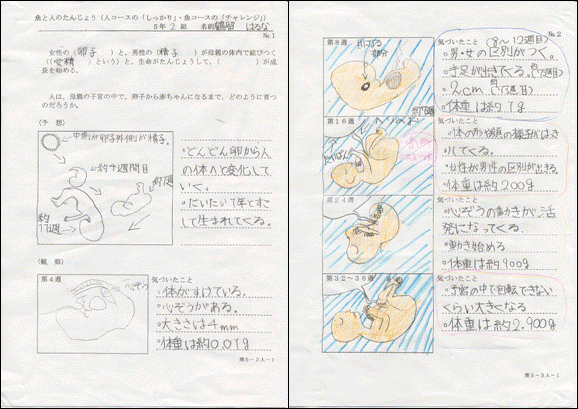 魚と人のたんじょう(人コースの「しっかり」・魚コースの「チャレンジ」)
5年 2 組 名前 はるな
№1
女性の(卵子)と、男性の(精子)が母親の体内で結びつく
((受精)という)と、生命がたんじょうして、( )が成
長を始める。
人は、母親の子宮の中で、卵子から赤ちゃんになるまで、どのように育つ
のだろうか。
(予 想)
中側が卵子外側が精子。
約4週間目
約
16週
・どんどん卵から人
の体へと変化して
いく。
・だいたい1年とすこ
しで生まれてくる。
(観 察)
第4週
心ぞう
気づいたこと
・体がすけている。
・心ぞうがある。
・大きさは4mm
・体重は約0.01g
理5-3人-1
№2
第8週
気づいたこと(8~12週目)
・男・女の区別がつく。
・手足が出きてくる。(約7週目)
・2cm(約 週目)
・体重は約1g
第16週
たいばん
・体の形や顔の様子がはっき
りしてくる。
・女性か男性の区別が出きる。
・体重は約200g
第24週
・心ぞうの動きが活
発になってくる。
・動き始める
・体重は約900g
第32~36週
気づいたこと
・子宮の中で回転できない
くらい大きくなる
・体重は約2,900g
理5-3人-1